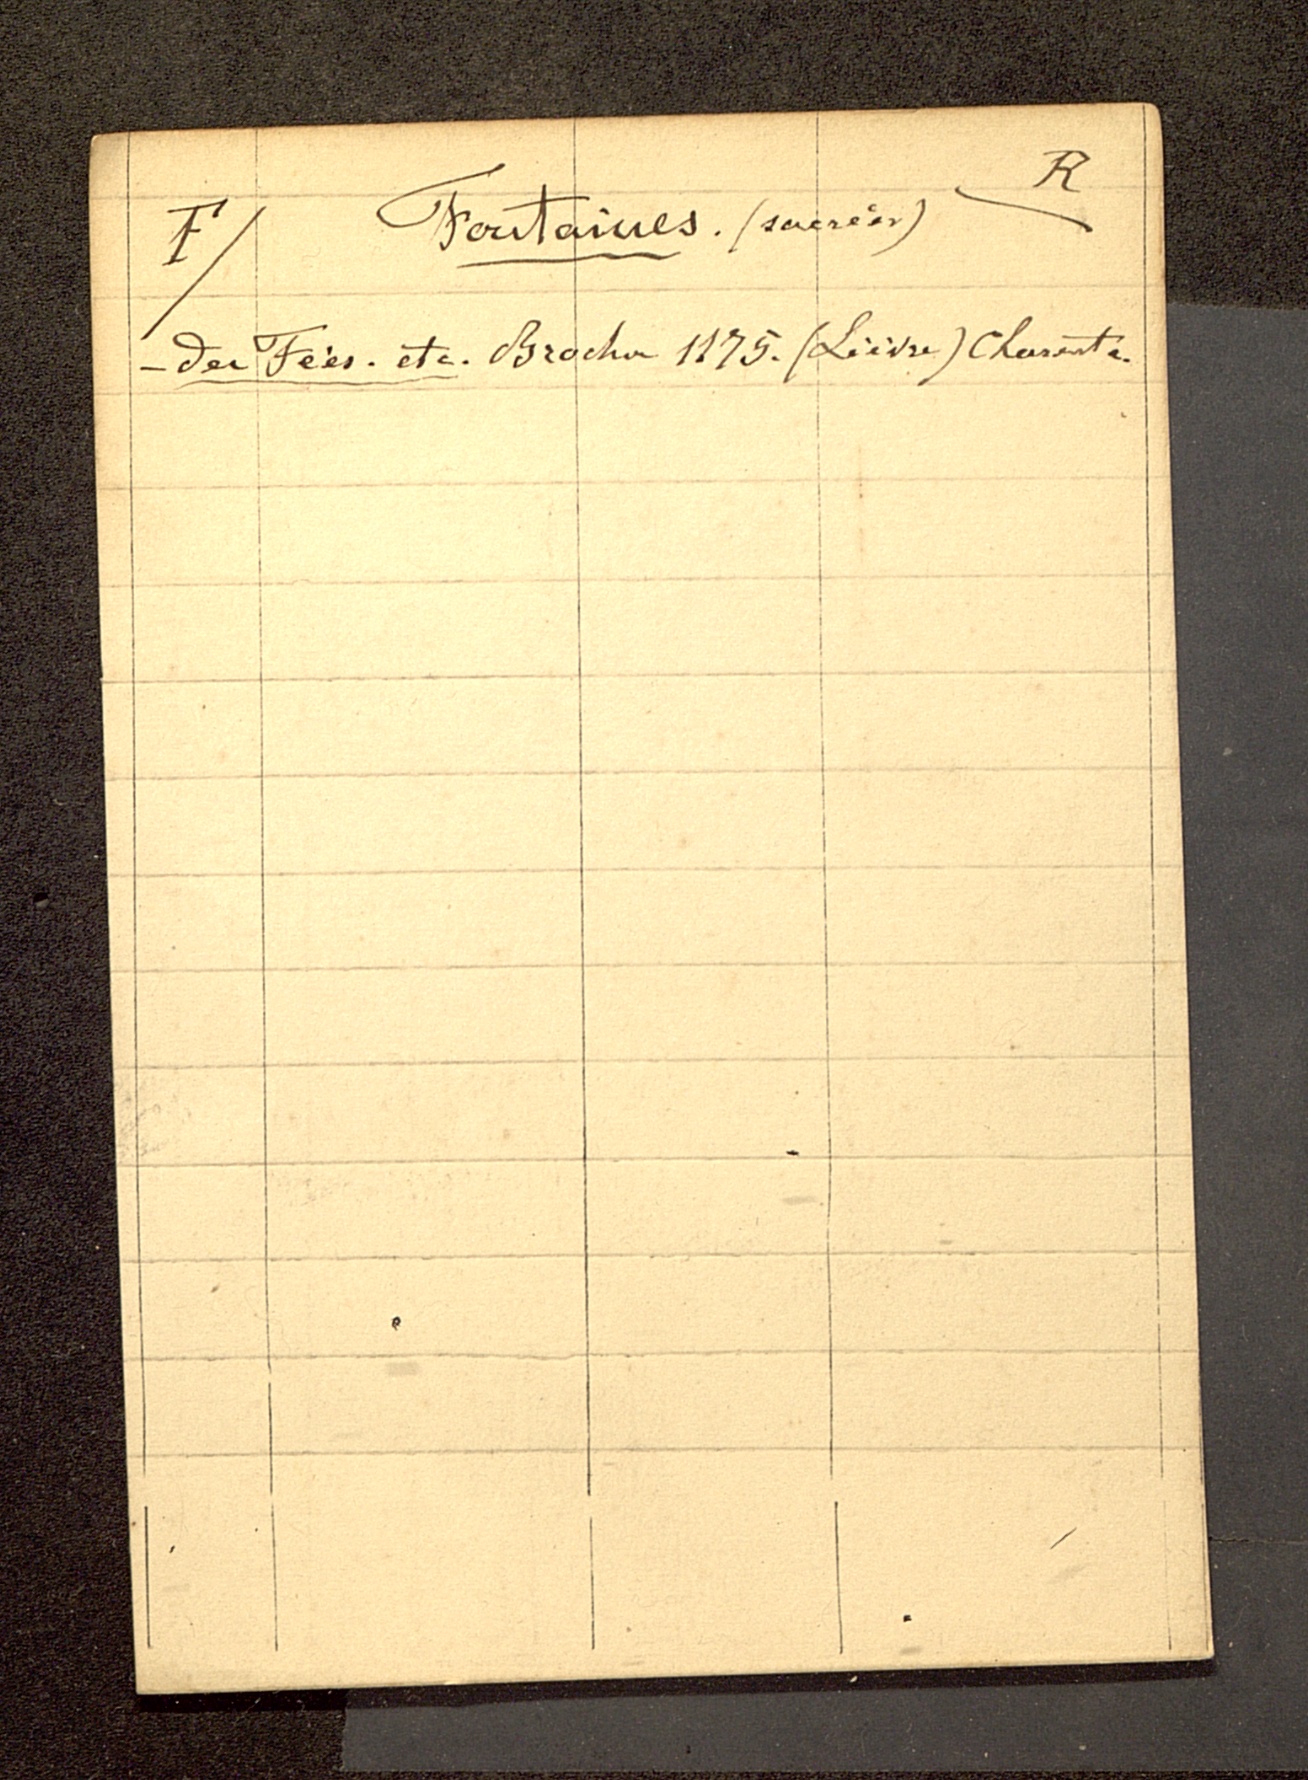 F
Fontaines. (sacrées)
R
- des Fées. etc. Brochr 1175. (Lièvre) Charente.